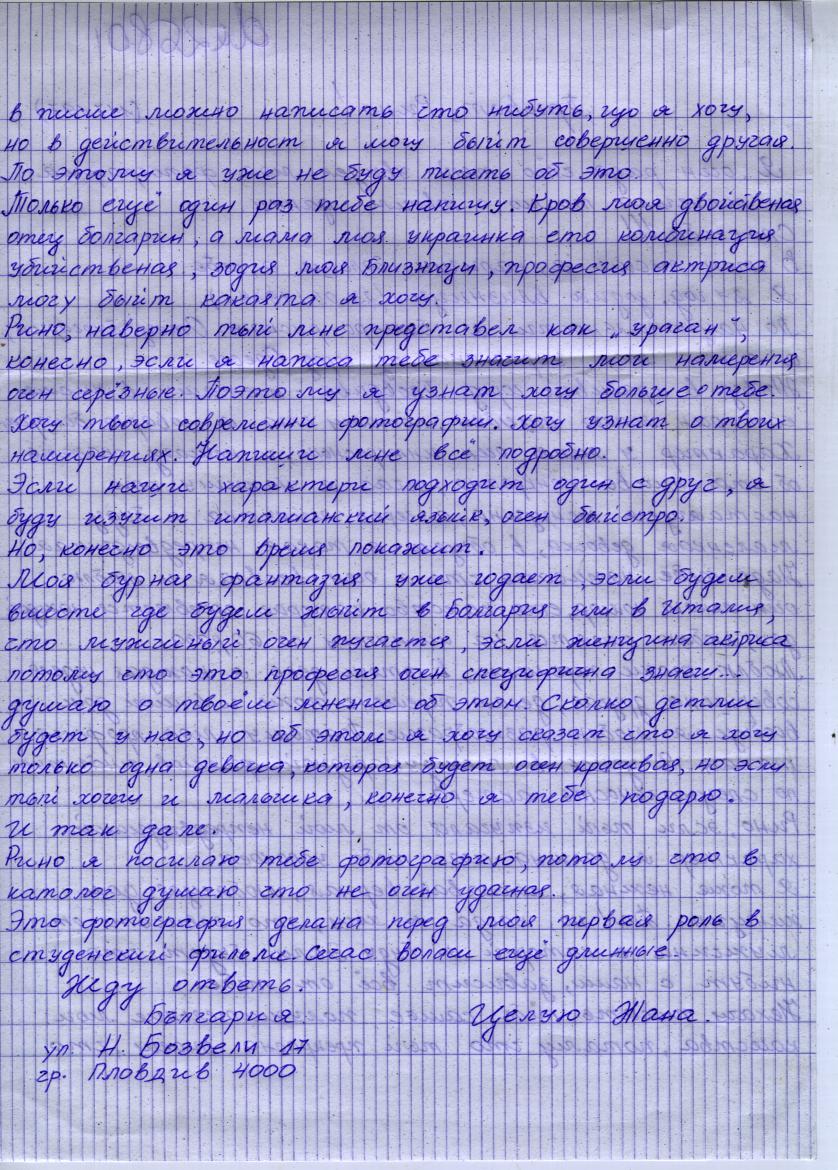 в писме можно написать что нибуть, что я хочу,
но в действительност я могу быйт совершенно другая.
По этому я уже не буду писать об это.
Только ещё один раз тебе напишу. Кров моя двойственая
отец болгарин, а мама моя украинка ето комбинация
убийственая, зодия моя Близнеци, професия актриса
могу быйт какаята я хочу.
Рино, наверно тый мне представел как „ураган",
конечно, эсли я написа тебе значит мои намерения
очен серёзные. Поэтому я узнат хочу больше о тебе.
Хочу твои современни фотографии. Хочу узнат о твоих
намирениях. Напиши мне всё подробно.
Эсли наши характери подходит один с друг, я
буду изучит италианский язык, очен быйстро.
Но, конечно это время покажит.
Моя бурная фантазия уже годает, эсли будем
вместе где будем жыйт в Болгария или в Италия,
что мужчиный очен пугается, эсли женщина актриса
потому что это професия очен специфична знаеш...
думаю о твоём мнение об этом. Сколко детми
будет у нас, но об этом я хочу сказат что я хочу
только одна девочка, которая будет очен красивая, но эсли
тый хочеш и мальчика, конечно я тебе подарю.
И так дале.
Рино я посилаю тебе фотографию, потому что в
католог думаю что не очен удачная.
Это фотография делана перед моя первая роль в
студенский фильм. Сечас воласи ещё длинные.
Жду ответь.
България. Целую Жана.
ул. Н. Бозвели 17
гр. Пловдив 4000